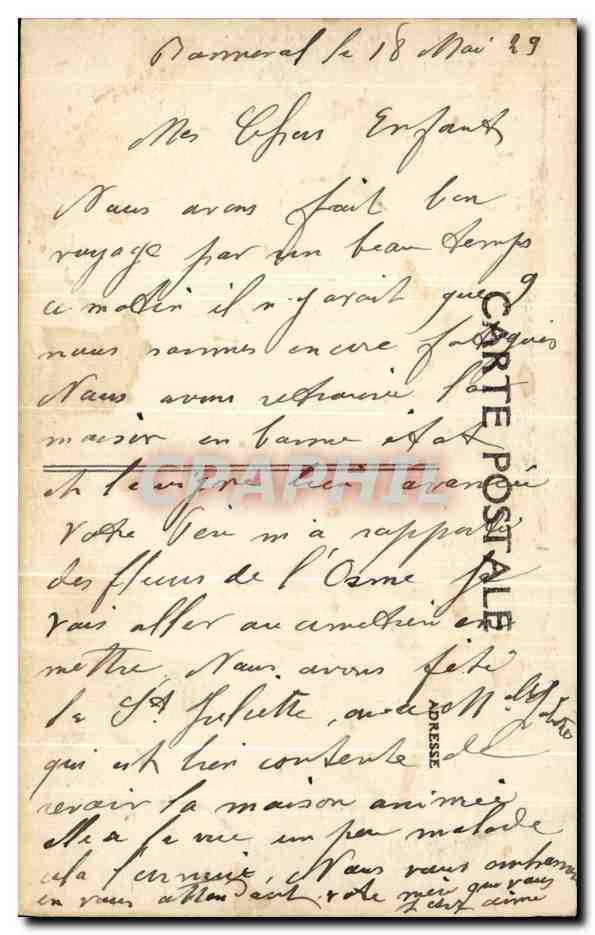 le 18 Mai 29
Mes Chers Enfants
Nous avons fait bon
voyage par un beau temps
ce matin il n y avait que 9
nous sommes encore fatigués
Nous avons retrouvé la
maison en bonne état
et la vigne bien avancée
votre Père m a rapporté
des fleurs de l'Orme je
vais aller au cimetière en
mettre. Nous avons fêté
la St Juliette, avec M
qui est bien contente de
revoir la maison animée
Elle a la vue un peu malade
cela l'ennuie, Nous vous embrassons
en vous attendant, votre mère qui vous
aime
CARTE POSTALE
ADRESSE
CPAPHIL